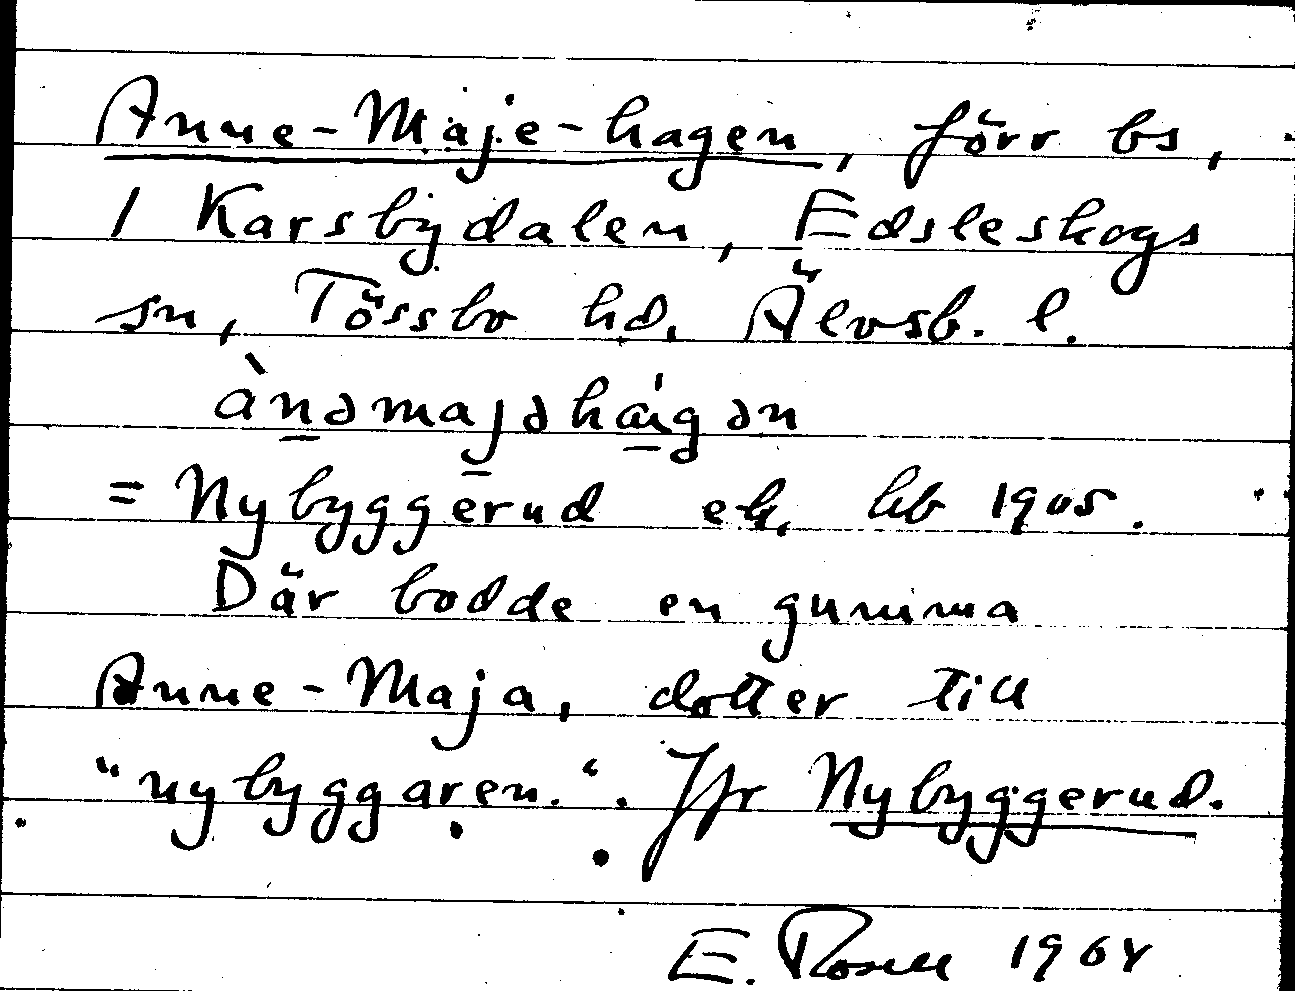 Anne-Maje-hagen, förr bs,
i Karsbydalen, Edsleskogs
sn, Tössbo hd. Älvsb. l.
ànəmajəhágən
= Nybyggerud ek. hb 1905.
Där bodde en gumma
Anne-Maja, dotter till
"nybyggaren.". Jfr Nybyggerud.
E. Rosell 1964